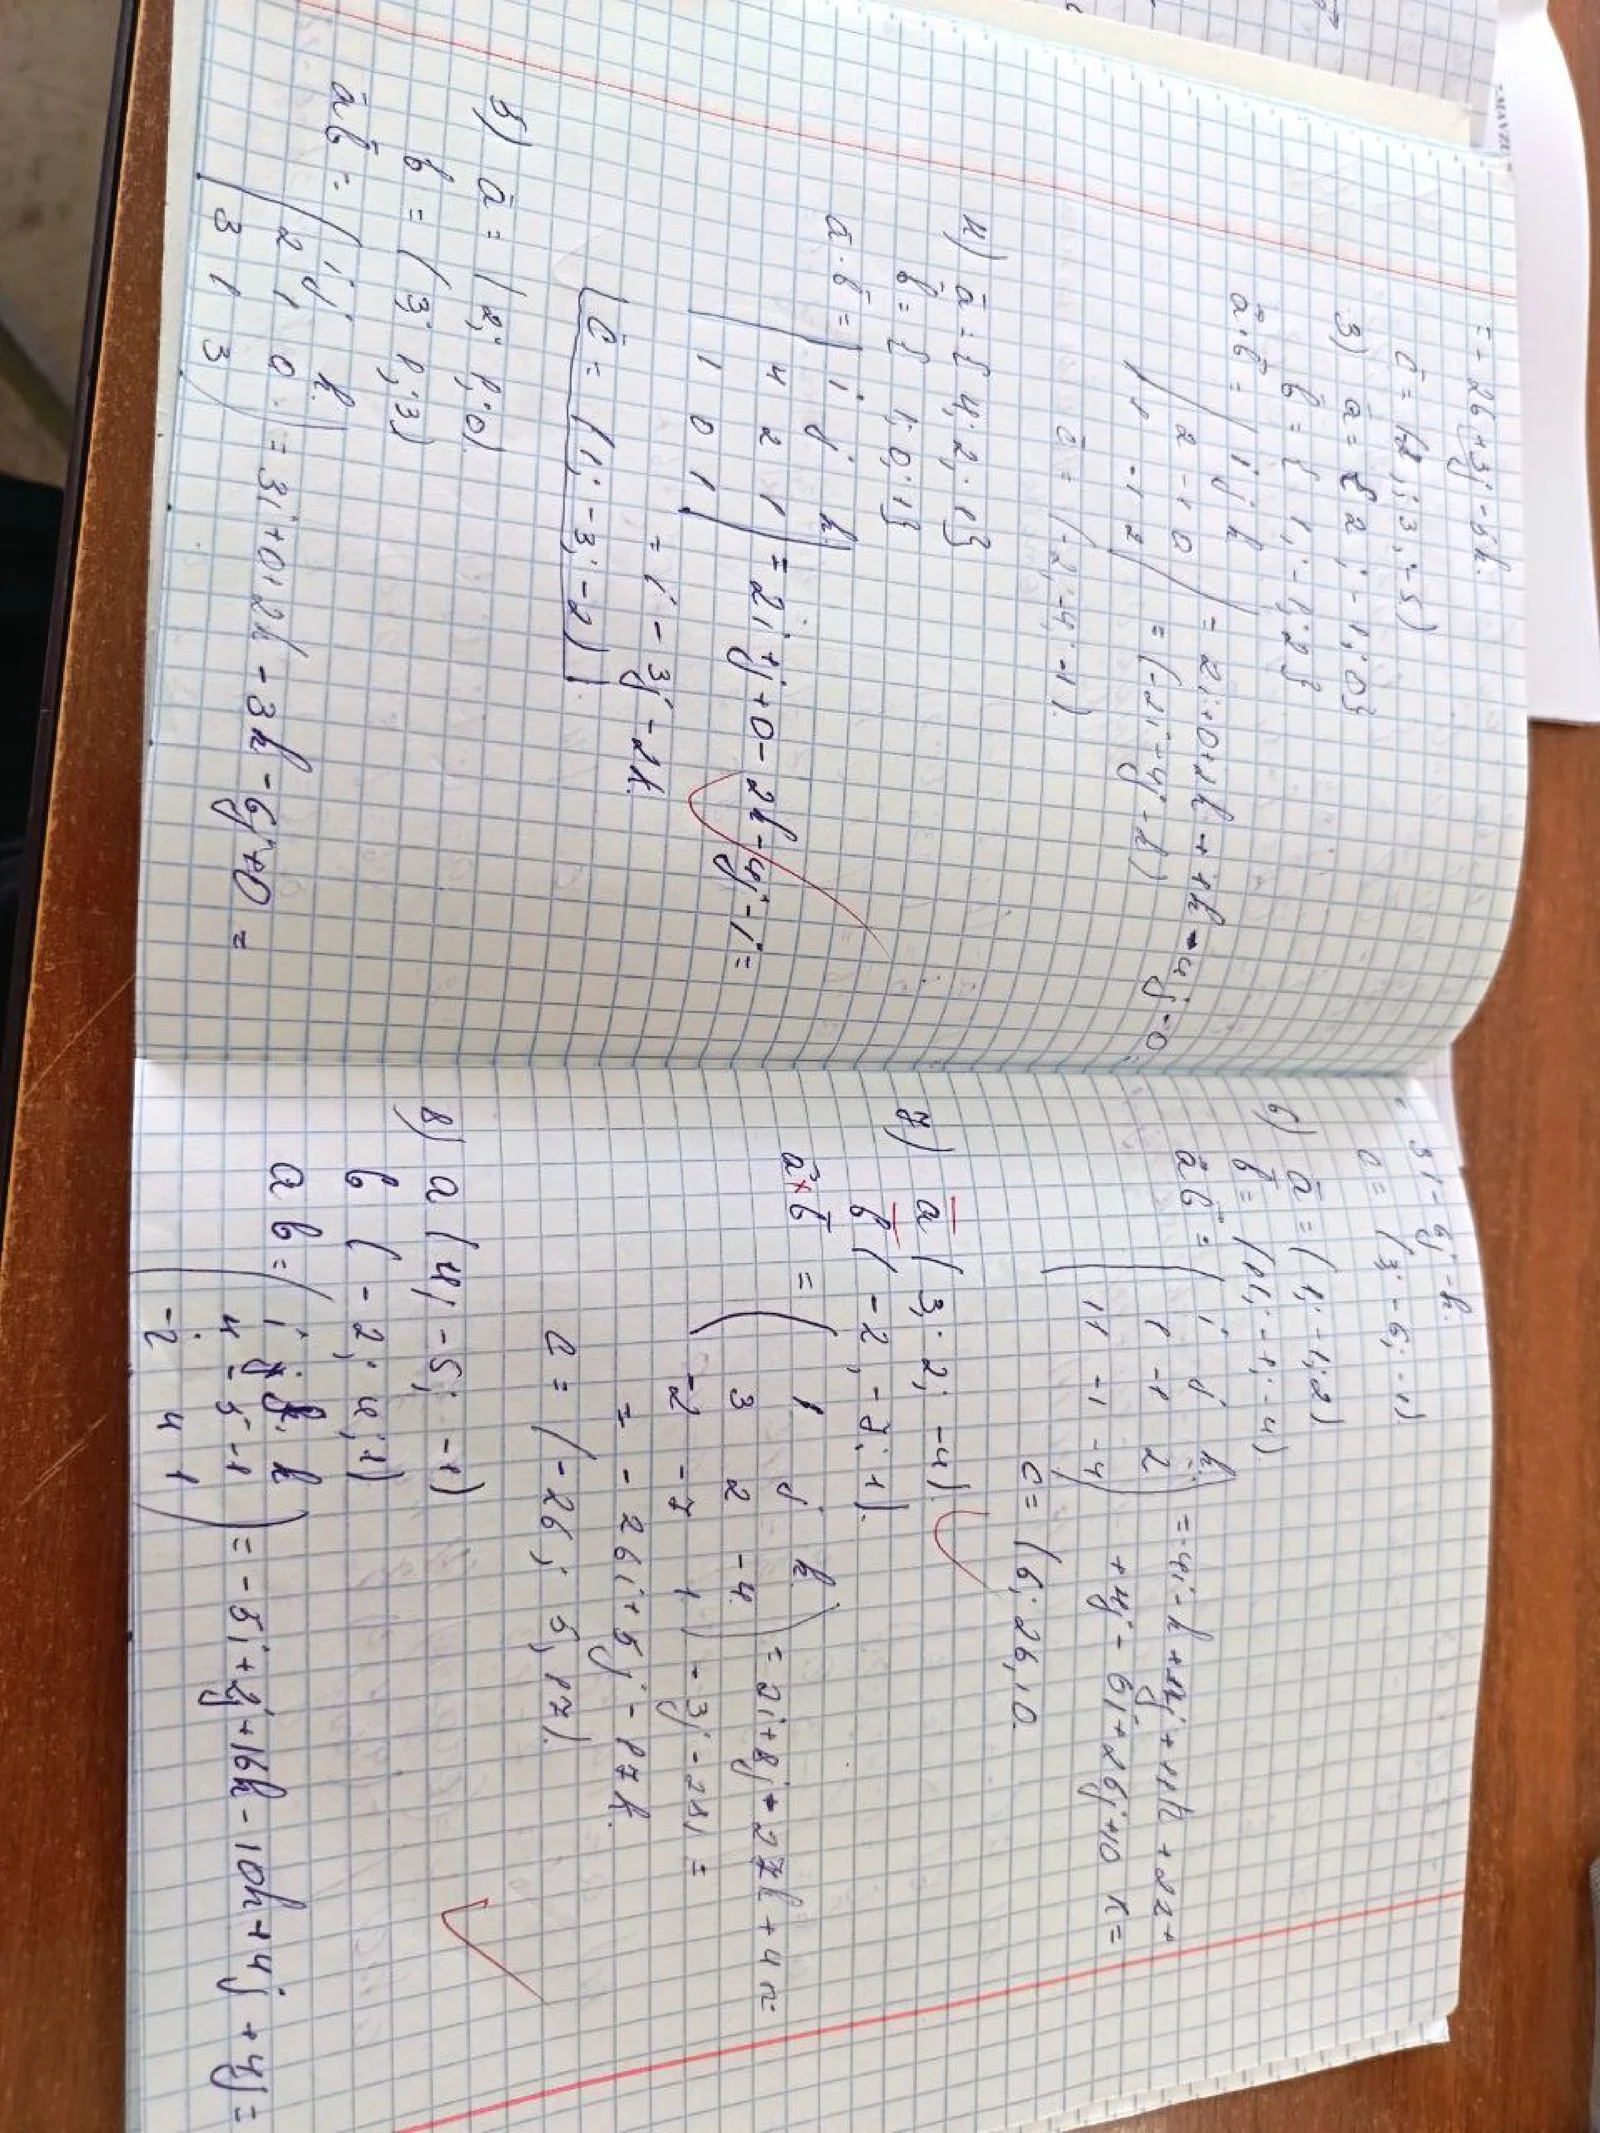 = - 26i + 3j - 5k.
c̄ = (2; 3; -5)
3) ā = {2; -1; 0}
b̄ = {1; -1; 2}
ā·b̄ = | i j k
2 -1 0
1 -1 2 | = 2i+0+2k + +k - 4j - 0
= (-2i - 4j - k)
c̄ = (-2; -4; -1).
4) ā = {4; 2; 1}
b̄ = {1; 0; 1}
ā·b̄ = | i j k
4 2 1
1 0 1 | = 2i + j + 0 - 2k - 4j - i =
= i - 3j - 2k.
c̄ = (1; -3; -2).
5) ā = (2; 1; 0)
b = (3; 1; 3)
āb̄ = ( i j k
2 1 0
3 1 3 ) = 3i + 0 + 2k - 3k - 6j + 0 =
= 3i - 6j - k.
c = (3; -6; -1)
6) ā = (1; -1; 2)
b̄ = (11; -1; -4)
āb̄ = ( i j k
1 -1 2
11 -1 -4 ) = -4i - k + j + 11k + 22 +
+4j - 6i + 26j + 10 k =
c = (6; 26, 10
7) a (3; 2; -4).
b (-2, -7; 1).
ā×b̄ = ( i j k
3 2 -4
-2 -7 1 ) = 2i + 8j - 27k + 4k
- 3j - 28i =
= - 26i + 5j - 17k.
c = (-26; 5, 17).
8) a (4; -5; -1)
b (-2; 4; 1)
a b = ( i j k
4 -5 -1
-2 4 1 ) = - 5i + 2j + 16k - 10k + 4j + 4j =